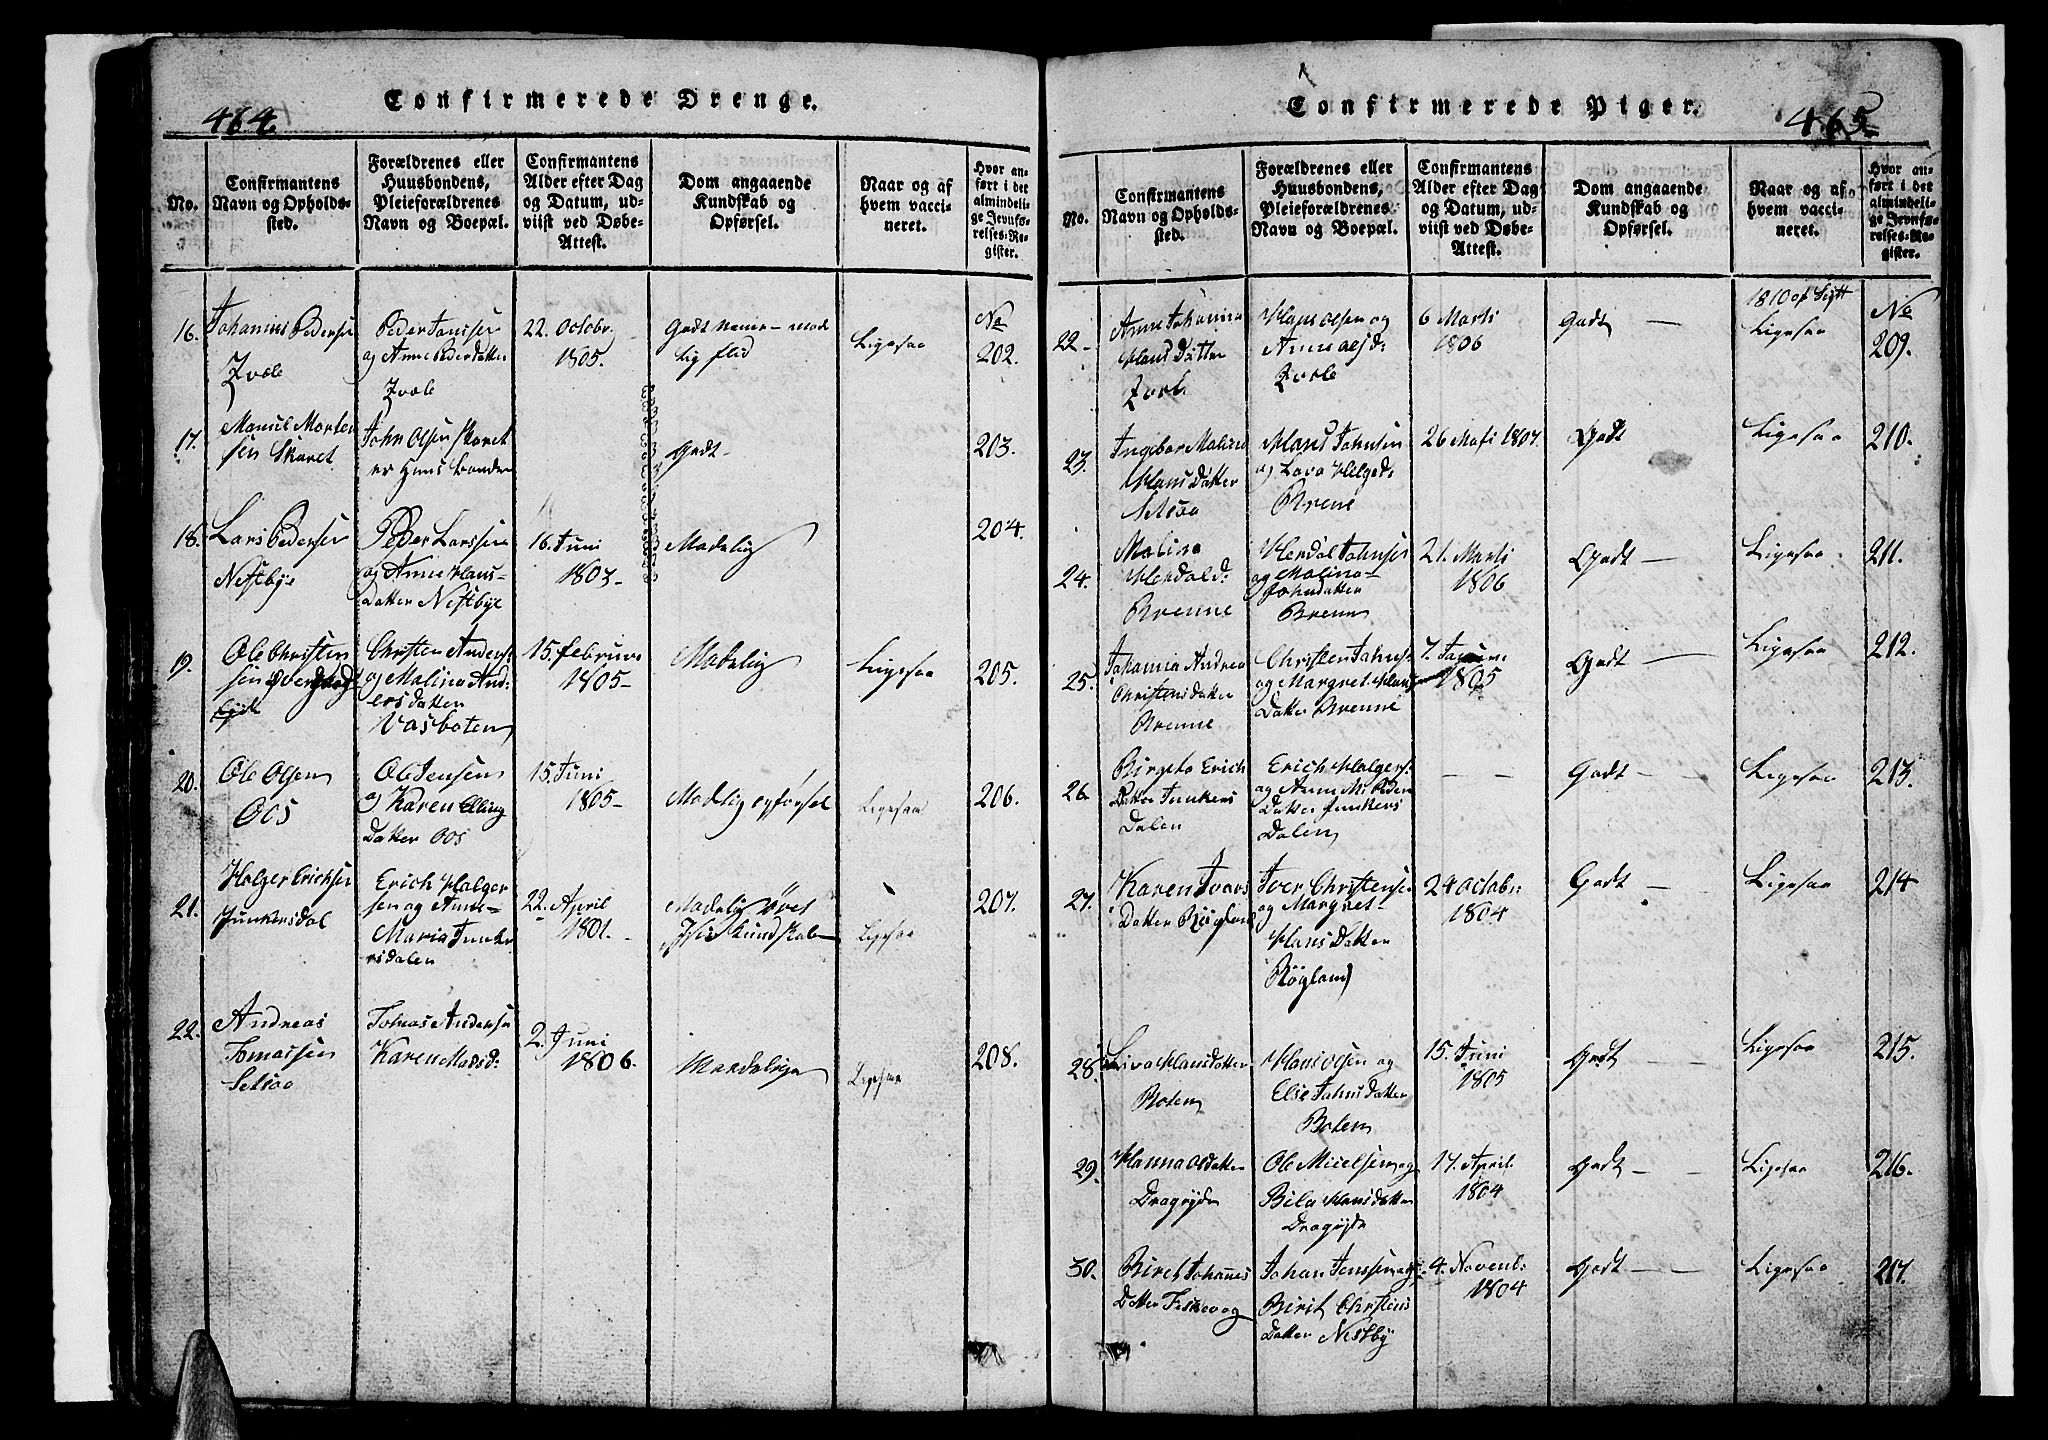 464.
Confirmerede Drenge.
No.
Confirmantens
Navn og Opholds-
sted.
Forældrenes eller
Huusbondens,
Pleieforældrenes
Navn og Boepæl.
Confirmantens
Alder efter Dag
og Datum, ud-
viist ved Døbe-
Attest.
Dom angaaende
Kundskab og
Opførsel.
Naar og af
hvem vacci-
neret.
Hvor an-
ført i det
almindeli-
ge Jevnfø-
relses-Re-
gister.
16.
Johannes Pedersen
Zvole
Peder Jonssen
og Anne Peder datter
Zvole
22. Octobr.
1805.
Godt
lig flid
Ligesaa
No
202.
17.
Morten
sen Skaret
John Olsen Skaret
er Huus bonden
Godt
203.
18.
Lars Pedersen
Nestbye
Peder Larssen
og Anne Hans-
datter Nestbye
16. Juni
1803-
Madelig
204.
19.
Ole Christen
sen
Christen Anders:
og Malina And:
ers datter
Vasboten
15. februar
1805-
Madelig
Ligesaa
205.
20.
Ole Olsen
Oos
Ole Jensen
og Karen Elling
Datter Oos
15. Juni
1805-
Madelig opførsel
Ligesaa
206.
21.
Holger Ericksen
Junkersdal
Erich Holger
sen og Anne-
Maria Junke
rsdalen
22. April
1801.-
Madelig
Kundskab-
Ligesaa
207.
22.
Andreas
Tomassen
Setsaa
Tomas Andersen
Karen Madsd:
2. Juni
1806.
Maadelige
Ligesaa
208.
Confirmerede Piger.
465
No.
Confirmantens
Navn og Opholds-
sted.
Forældrenes eller
Huusbondens,
Pleieforældrenes
Navn og Boepæl.
Confirmantens
Alder efter Dag
og Datum, ud-
viist ved Døbe-
Attest.
Dom angaaende
Kundskab og
Opførsel.
Naar og af
hvem vacci-
neret.
Hvor an-
ført i det
almindeli-
ge Jevnfø-
relses-Re-
gister.
22-
Anne Johanna
Hans Datter
Zvole
Hans Olsen og
Anne Olsd:
Zvole
6 Marti
1806
Godt
1810 af
Ligesaa
No
209.
23.
Ingebor Malena
Hans Datter
Setsaa
Hans Johnsen
og Lava Helged:
Brene
26 Maji 1807.
Godt
Ligesaa
210.
24.
Malina
Herdald:
Brenne
Herdal Johnsen
og Malina
Johndatter
Brenn
21. Marti
1806
Godt
Ligesaa
211.
25.
Johanna Andrea
Christensdatter
Brenne
Christen Johns:
og Margret Hans
Datter Brenne
7. Januar:
1805
Godt
Ligesaa
212.
26.
Birgeta Erich
Datter Junkers
Dalen
Erich Holgers:
og Anne M: Peder
Datter Junkers
Dalen
Godt
Ligesaa
213.
27.
Karen Ivars
Datter Røgland
Iver Christensen
og Margret-
Hans Datter
Røgland
24 Octobr:
1804
Godt
Ligesaa
214
28.
Liva Hansdatter
Boten
Hans Olsen og
Else Johns datter
Boten
15. Juni
1805
Godt
Ligesaa
215.
29.
Hanna Olsdatter
Dragøjde
Ole Micelsen og
Bila Hansdatter
Dragøjde
17. April
1804
Godt
Ligesaa
216.
30.
Biret Johannes
Datter Fiskevog
Johan Jenssen og
Birit Christens
Datter Nestby
4. Novemb:
1804
Godt
Ligesaa
217.